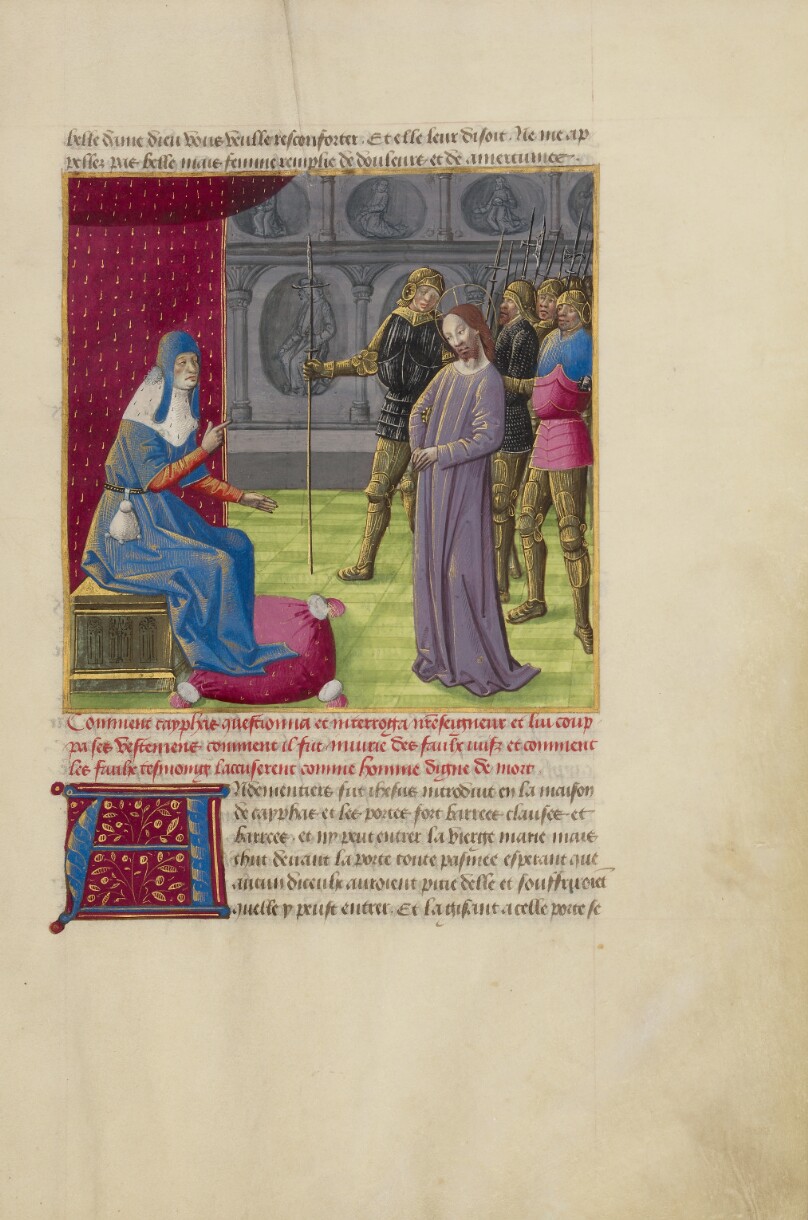 belle dame dieu vous veulle resconforter. Et elle leur disoit. Ne me ap
pelles pas belle mais femme remplie de douleurs et de amertumes.
Comment cayphas questionna et interroga nreseigneur et lui coup
pa ses vestemens comment il fut iniurie des faulx iuifz et comment
les faulx tesmongz laccuserent comme homme digne de mort.
ANdementiers fut ihesus introduit en la maison
de cayphas et les portes fort barrees clauses et
barrees. et ny peut entrer la vierge marie mais
chut deuant la porte toute pasmee esperant que
aucun diceulx auroient pitie delle et souffriroiet
quelle y peust entrer. Et la gisant a celle porte se